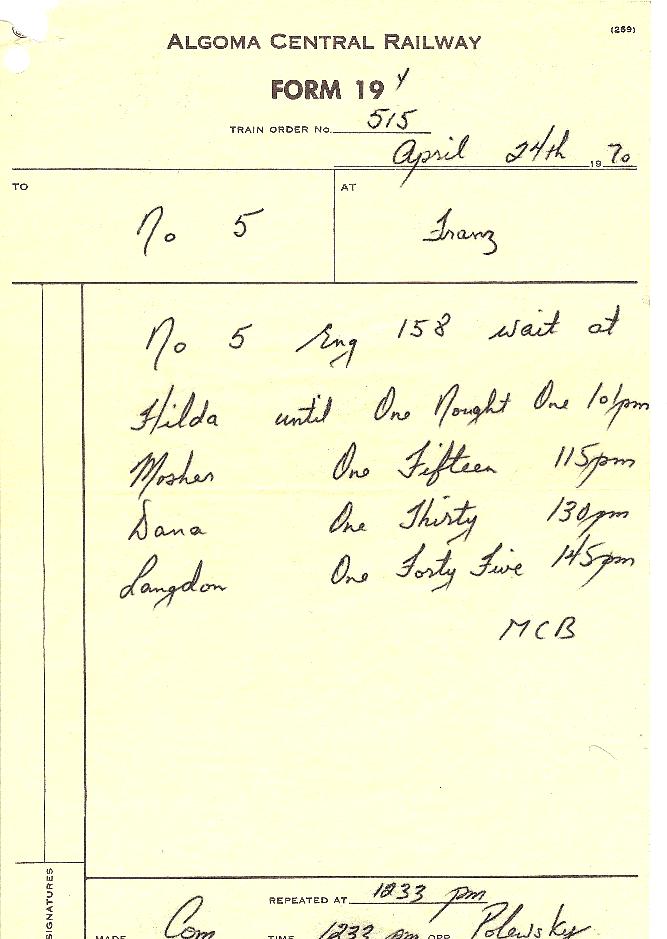 (269)
ALGOMA CENTRAL RAILWAY
FORM 19 Y
TRAIN ORDER No. 515
April 24th 19 70
TO No 5 AT Franz
No 5 Eng 158 wait at
Hilda until One Nought One 101pm
Mosher One Fifteen 115pm
Dana One Thirty 130pm
Langdon One Forty Five 145pm
MCB
SIGNATURES
REPEATED AT 1233 pm
MADE Com TIME 1233 pm OPR Polewsky